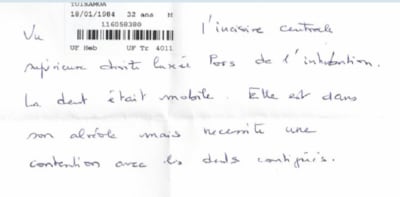 TUISAMOA
18/01/1984 32 ans M
116058380
UF Heb UF Tr 4011
Vu l'incisive centrale
supérieure droite luxée lors de l'intubation.
La dent était mobile. Elle est dans
son alvéole mais necessite une
contention avec les dents contiguës.